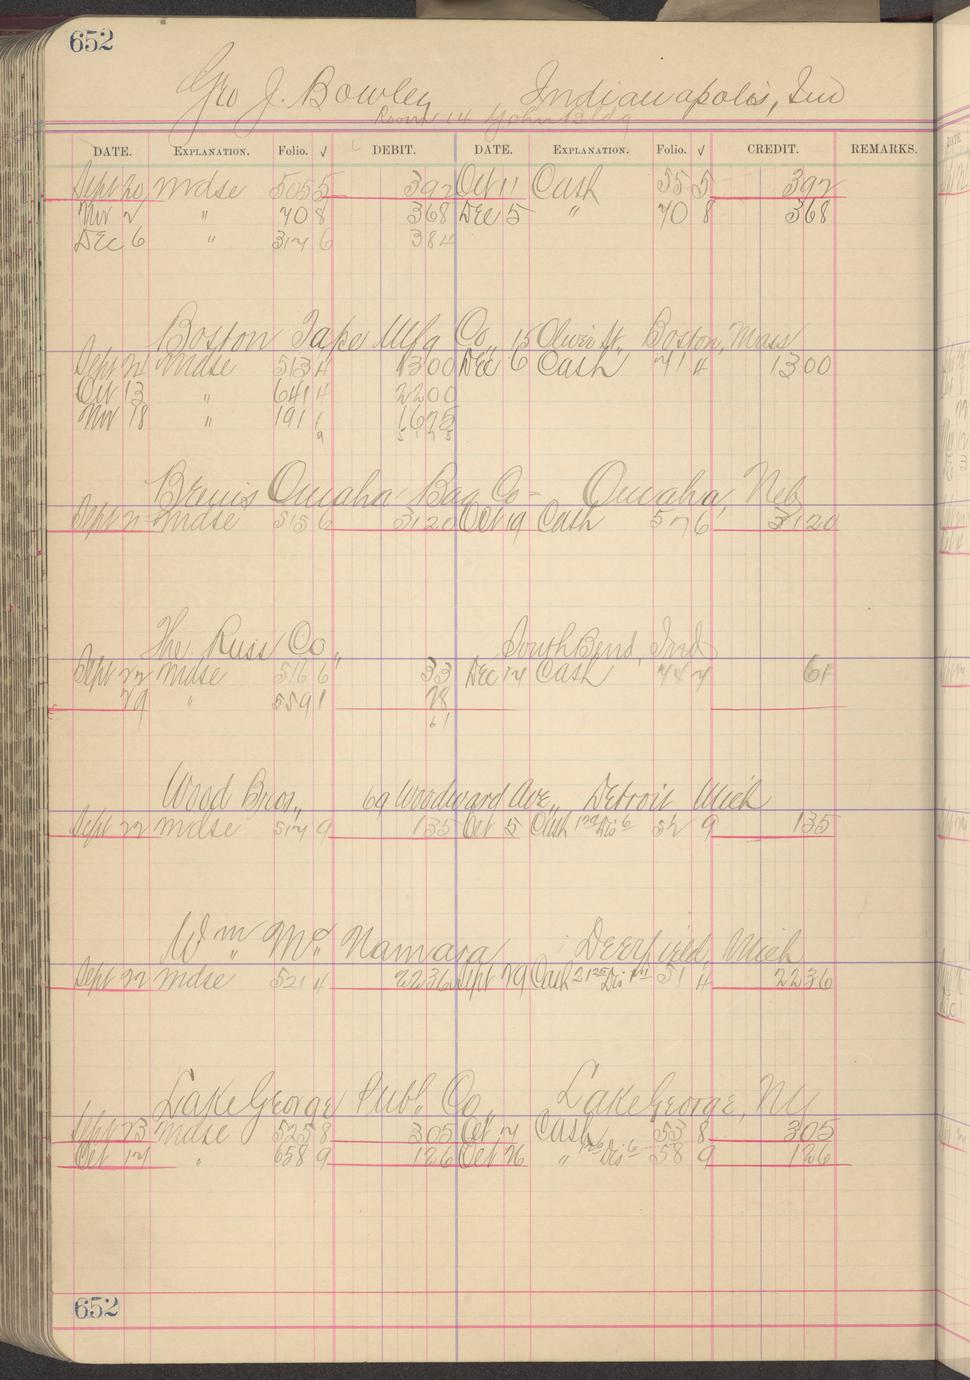 652
Geo J. Bowley Indianapolis, Ind
Room 14 Bldg
DATE. EXPLANATION. Folio. √ DEBIT. DATE. EXPLANATION. Folio. √ CREDIT. REMARKS.
Sept 20 Mdse 505 5 392 Oct 11 Cash 55 5 392
Nov 2 " 70 8 368 Dec 5 " 70 8 368
Dec 6 " 317 6 384
Boston Tape Mfg Co., 15 Oliver St., Boston, Mass
Sept 21 Mdse 513 4 1300 Dec 6 Cash 71 4 1300
Oct 13 " 641 4 2200
Nov 18 " 191 1 1675
9 5175
Bemis Omaha Bag Co - Omaha, Neb
Sept 21 Mdse 515 6 3120 Oct 19 Cash 57 6 3120
The Russ Co., South Bend, Ind
Sept 22 Mdse 516 6 33 Dec 14 Cash 74 7 61
29 " 559 1 28
61
Wood Bros., 69 Woodward Ave., Detroit Mich
Sept 22 Mdse 517 9 135 Oct 5 Cash Dis 52 9 135
Wm Mc Namara Deerfield, Mich
Sept 22 Mdse 521 4 2236 Sept 29 Cash Dis 51 4 2236
Lake George Publ. Co., Lake George, NY
Sept 23 Mdse 525 8 305 Oct 7 Cash 53 8 305
Oct 14 " 658 9 126 Oct 26 " Dis 58 9 126
652